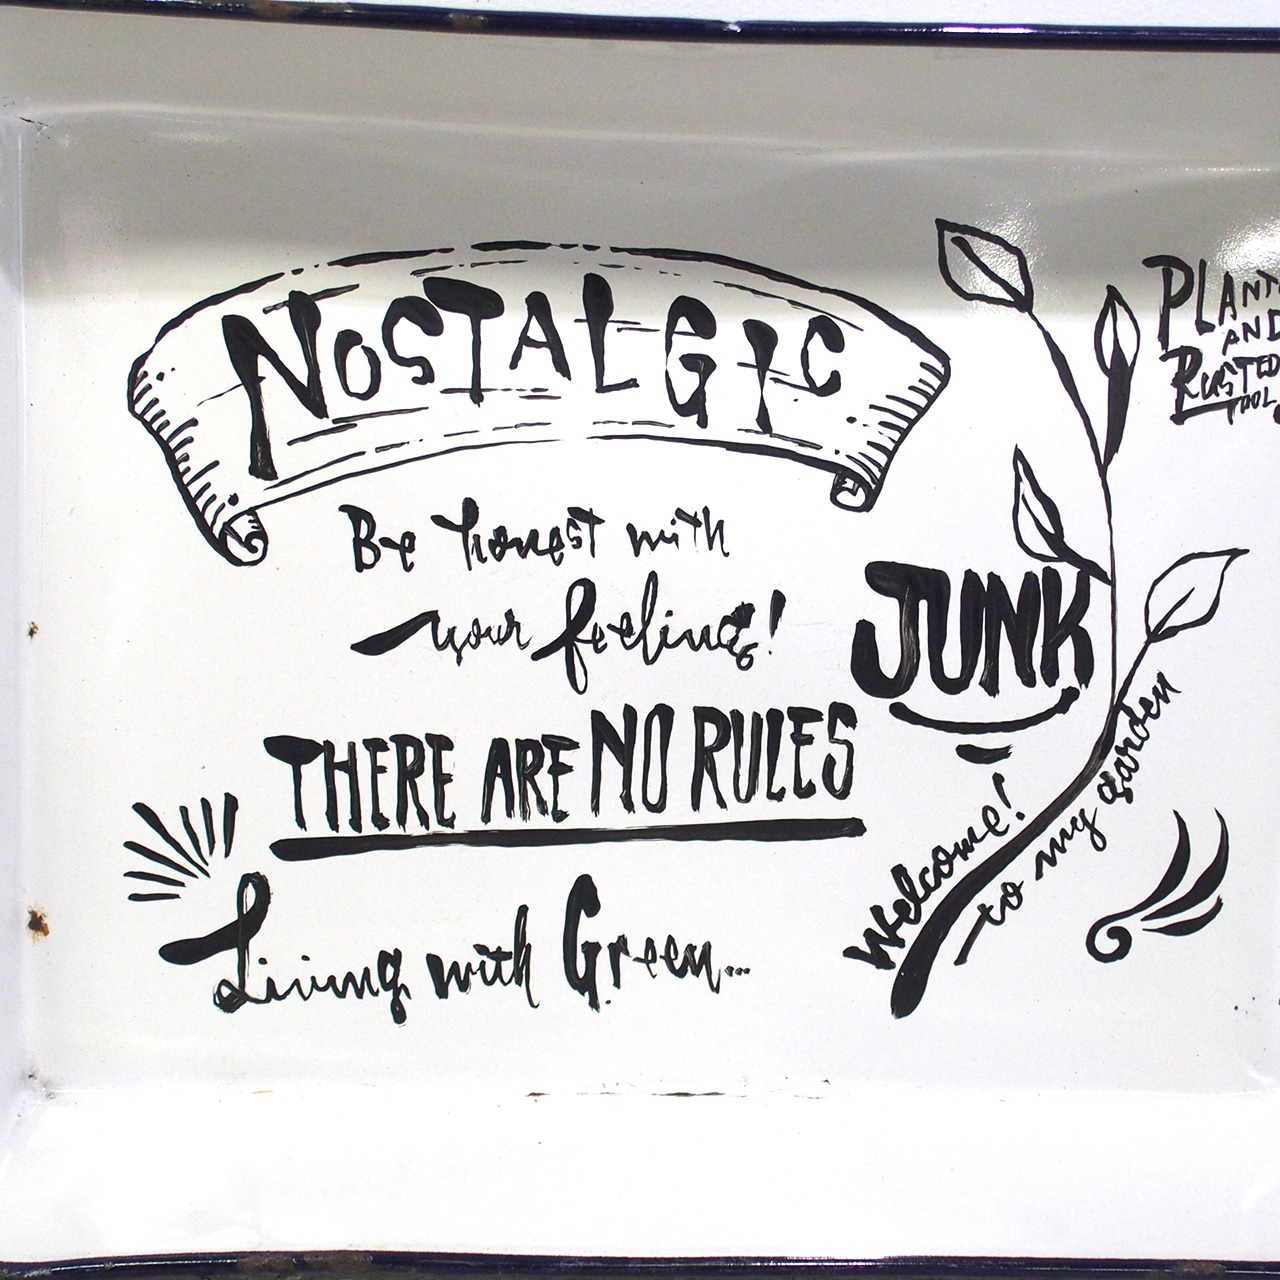 NOSTALGIC
Be honest with
your feelings!
THERE ARE NO RULES
Living with Green...
JUNK
Welcome!
to my garden
AND
RUSTED